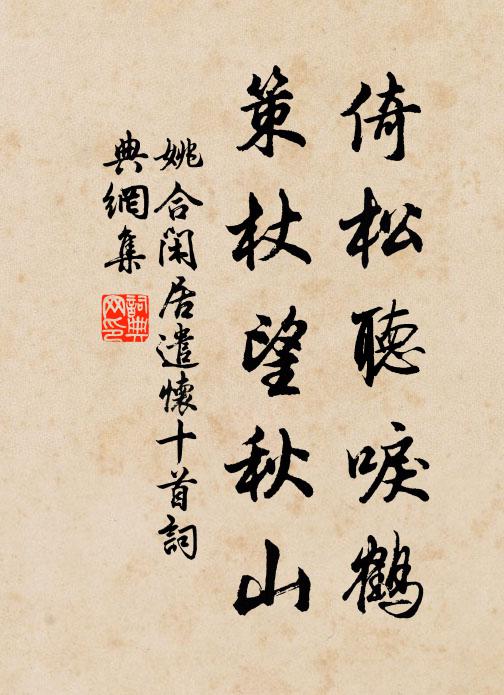 倚松聽唳鶴
策杖望秋山
姚合閑居遣懷十首詞
典網集
詞典網印